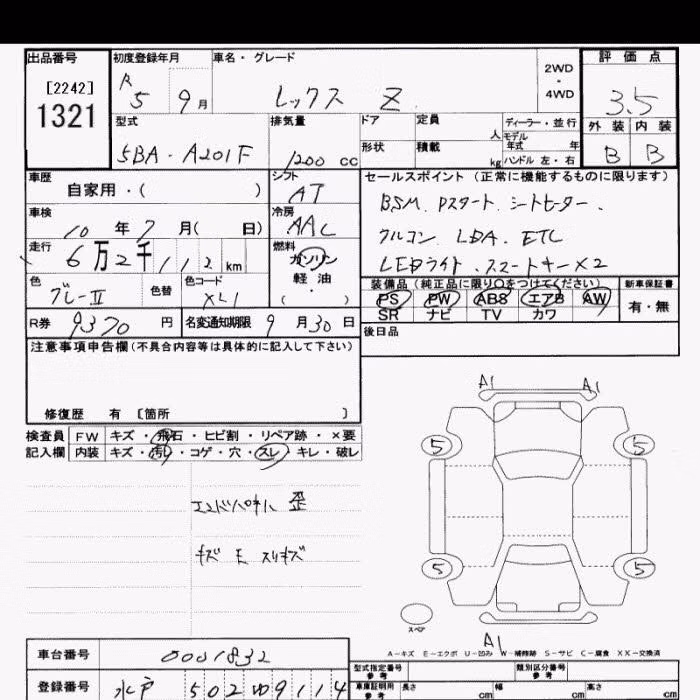 出品番号 初度登録年月 車名・グレード 評価点
[2242] R 5 9月 レックス Z 2WD・4WD 3.5
1321
型式 排気量 ドア 定員 人 ディーラー・並行 外装 内装
モデル年式 年
5BA-A201F 1200 cc 形状 積載 kg ハンドル 左・右 B B
車歴 シフト セールスポイント (正常に機能するものに限ります)
自家用・( ) AT BSM. Pスタート. シートヒーター.
車検 冷房
10年7月( 日) AAC クルコン. LDA. ETC
走行 燃料
6万2千112km ガソリン LEDライト. スマートキー×2
軽油
・
( )
色 色替 色コード 装備品 (純正品に限り○をつけてください) 新車保証書
グレーII XL1 PS PW ABS エアB AW 有・無
SR ナビ TV カワ
R券 9370円 名変通知期限 9月30日 後日品
注意事項申告欄(不具合内容等は具体的に記入して下さい)
修復歴 有 〔箇所 〕
A1 A1
検査員 FW キズ・飛石・ヒビ割・リペア跡・×要
記入欄 内装 キズ・汚れ・コゲ・穴・スレ・キレ・破レ
5 5
エンドパネル 歪
キズ モ スリキズ
5 5
スペア
A1
A-キズ E-エクボ U-凹み W-補修跡 S-サビ C-腐食 XX-交換済
車台番号 0001832
型式指定番号 参考 類別区分番号 参考
登録番号 水戸 502 ゆ 9114
車庫証明用 参考 長さ cm 幅 cm 高さ cm